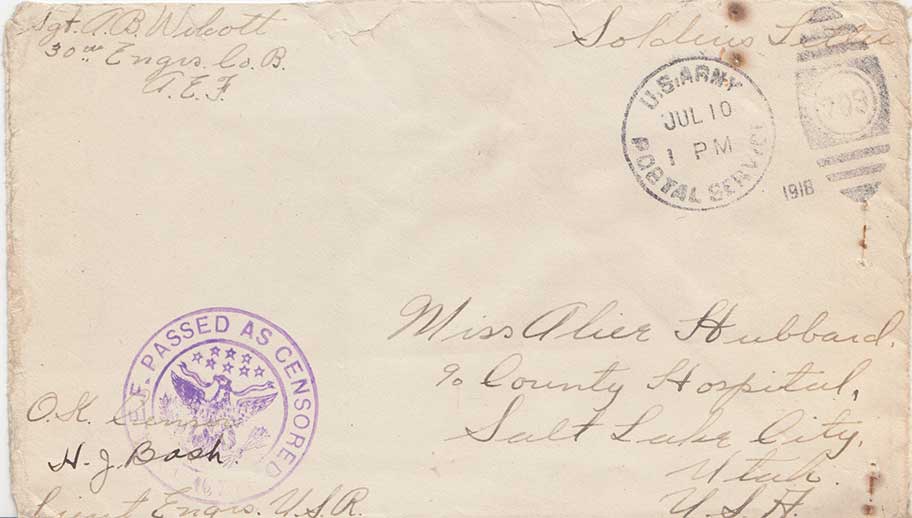 Sgt. A. B. Wilcott
30th Engrs. Co. B.
A. E. F.
Soldiers
U.S. ARMY
JUL 10
1 PM
POSTAL SERVICE
1918
Miss Alice Hubbard.
% County Hospital,
Salt Lake City,
Utah.
U.S.A.
PASSED AS CENSORED
O.K.
H. J. Bash.
Lieut Engrs. U.S.R.